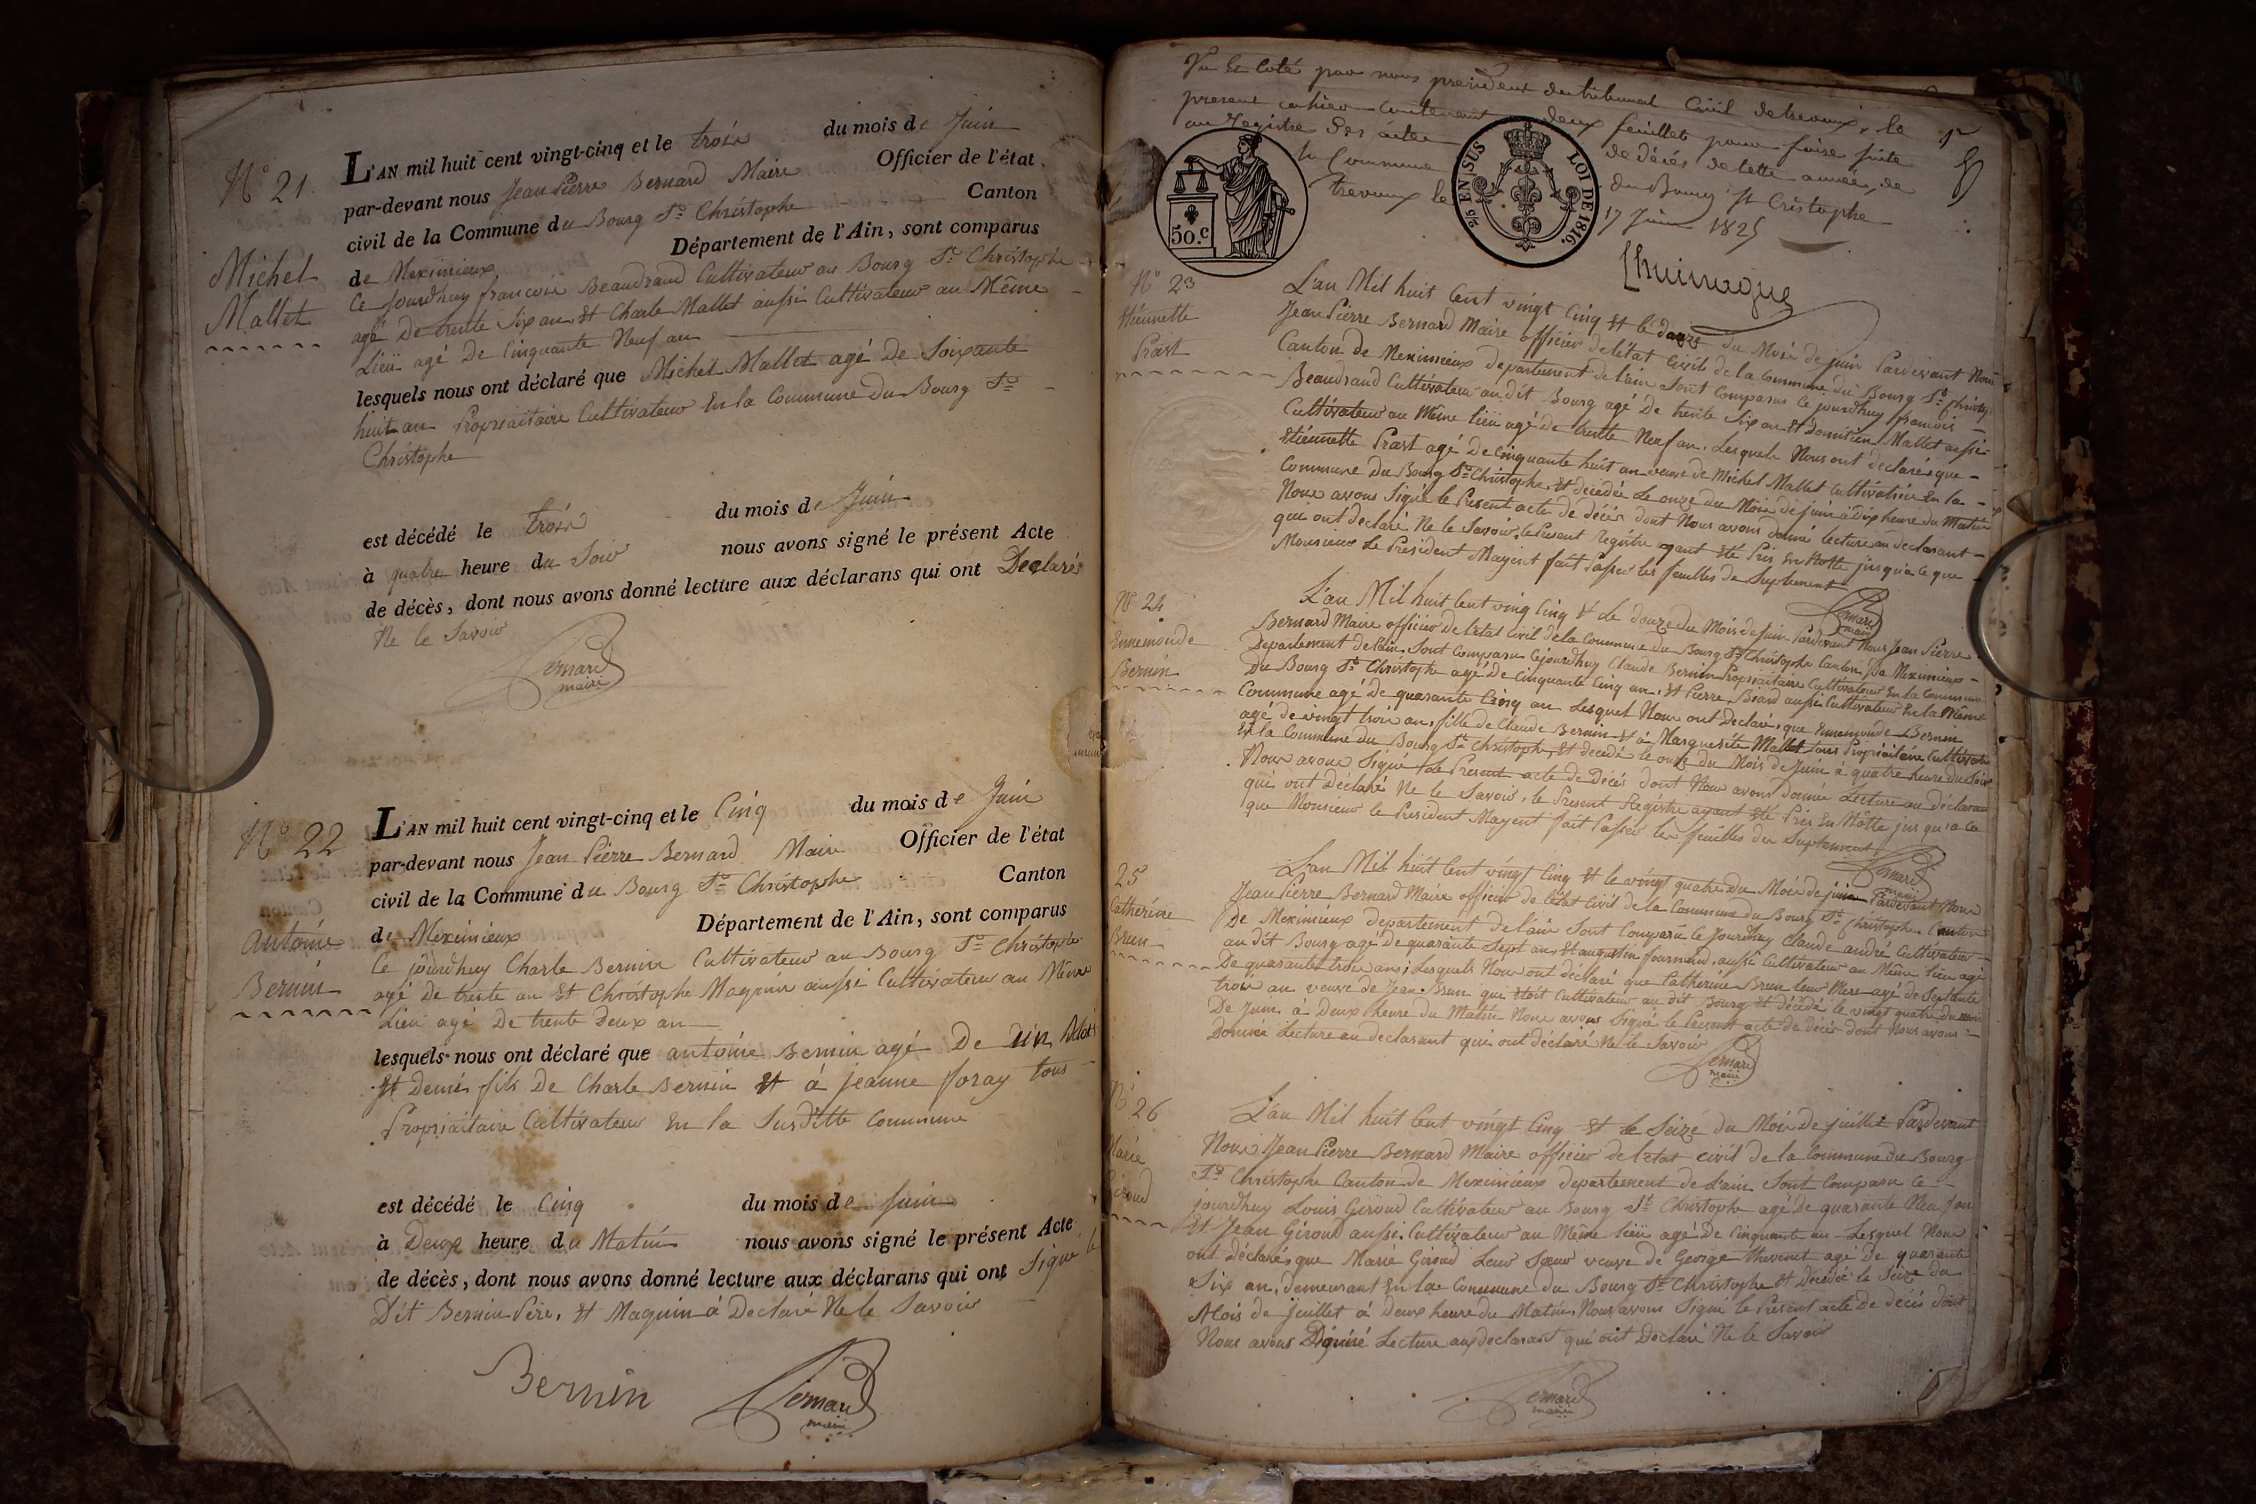 N° 21.
Michel
Mallet
L'AN mil huit cent vingt-cinq et le trois du mois de Juin
par-devant nous Jean Pierre Bernard Maire Officier de l'état
civil de la Commune du Bourg St. Christophe Canton
de Meximieux Département de l'Ain, sont comparus
Ce Jourdhuy francois Beaudrand Cultivateur au Bourg St. Christophe
agé De trente Six an Et Charle Mallet aussi Cultivateur au Même
Lieu agé De Cinquante Neuf an
lesquels nous ont déclaré que Michel Mallet agé De Soixante
huit an Propriaitaire Cultivateur En la Commune Du Bourg St.
Christophe
est décédé le trois du mois de Juin
à quatre heure du Soir nous avons signé le présent Acte
de décès, dont nous avons donné lecture aux déclarans qui ont Declarés
Ne le Savoir
Bernard
maire
N° 22
antoine
Bernin
L'AN mil huit cent vingt-cinq et le Cinq du mois de Juin
par-devant nous Jean Pierre Bernard Maire Officier de l'état
civil de la Commune du Bourg St. Christophe Canton
de Meximieux Département de l'Ain, sont comparus
Ce jourdhuy Charle Bernin Cultivateur au Bourg St. Christophe
agé De trente an Et Christophe Maguin aussi Cultivateur au Même
Lieu agé De trente Deux an
lesquels nous ont déclaré que antoine Bernin agé De un Mois
Et Demi fils De Charle Bernin Et á jeanne foray tous
Propriaitaire Cultivateur En la Susditte Commune
est décédé le Cinq du mois de Juin
à Deux heure du Matin nous avons signé le présent Acte
de décès, dont nous avons donné lecture aux déclarans qui ont Signé le
Dit Bernin Père, Et Maguin á Declaré Ne le Savoir
Bernin Bernard
maire
Vu Et Coté par nous president du tribunal Civil de trevoux, le
present cahier contenant deux feuillets pour faire suite
au Registre des actes de décés de cette année, de
la Commune du Bourg St Cristophe
trevoux le 17 Juin 1825
50.c
25 EN SUS
LOI DE 1816.
N° 23
Etiennette
Prast
L'an Mil huit Cent vingt Cinq Et le douze du Mois de juin Pardevant Nous
Jean Pierre Bernard Maire officier de l'état Civil de la Commune du Bourg St. Christophe
Canton de Meximieux departement de l'ain Sont Comparus Ce jourdhuy francois
Beaudrand Cultivateur au dit Bourg agé De trente Six an Et Mallet aussi
Cultivateur au Même lieu agé de trente Neuf an. Lesquels Nous ont declarés que
Etiennette Prast agé De Cinquante huit an veuve de Michel Mallet Cultivateur En la
Commune du Bourg St. Christophe, Et décedée Le onze du Mois de juin á Dix heure du Matin
Nous avons Signé le Présent acte de décés dont Nous avons donné lecture au declarant
qui ont declaré Ne le Savoir, le Present Registre ayant Eté Pris En Notte jusqua ce que
Monsieur Le President Mayent fait Passer les feuilles de Suplement
Bernard
maire
N° 24
Ennemonde
Bernin
L'an Mil huit Cent ving Cinq Et le douze du Mois de juin Pardevant Nous Jean Pierre
Bernard Maire officier de l'etat Civil de la Commune du Bourg St. Christophe Canton De Meximieux
Departement de l'ain, Sont Comparu Cejourdhuy Claude Bernin Propriaitaire Cultivateur En la Commune
Du Bourg St. Christophe agé De Cinquante Cinq an, Et Pierre Biard aussi Cultivateur En la Même
Commune agé de quarante Cinq an Lesquel Nous ont declaré que Ennemonde Bernin
agé de vingt trois an, fille de Claude Bernin Et á Marguerite Mallet tous Propriaitaire Cultivateur
En la Commune du Bourg St. Christophe, Et decedé le onze du Mois de Juin á quatre heure du Soir
Nous avons Signé le Present acte de Décés dont Nous avons donnée Lecture au déclarant
qui ont Déclaré Ne le Savoir, le Present Registre ayant Eté Pris En Notte jusqu'a ce
que Monsieur le President Mayent fait Passer les feuilles du Suplement
Bernard
maire
25
Catherine
Brun
L'an Mil huit Cent vingt Cinq Et le vingt quatre du Mois de juin Pardevant Nous
Jean Pierre Bernard Maire officier de l'etat Civil de la Commune du Bourg St. Christophe Canton
De Meximieux departement de l'ain Sont Comparu Ce Jourdhuy Claude andré Cultivateur
au dit Bourg agé de quarante Sept an Et augustin fournand aussi Cultivateur au Même lieu agé
De quarante trois ans, Lesquels Nous ont declaré que Catherine Brun leur Mere agé de Septante
trois an veuve de Jean Brun qui Etoit Cultivateur au dit Bourg Et décédé le vingt quatre du mois
De Juin á Deux heure du Matin Nous avons Signé le Present acte de décés dont Nous avons
Donné Lecture au declarant qui ont déclaré Ne le Savoir
Bernard
maire
N° 26
Marie
Giroud
L'an Mil huit Cent vingt Cinq Et le Seize du Mois De juillet Pardevant
Nous Jean Pierre Bernard Maire officier de l'etat civil de la Commune du Bourg
St. Christophe Canton de Meximieux departement de l'ain Sont Comparu Ce
jourdhuy Louis Giroud Cultivateur au Bourg St. Christophe agé De quarante Neuf an
Et Jean Giroud aussi Cultivateur au Même lieu agé De Cinquante an Lesquel Nous
ont déclarés que Marie Giroud Leur Soeur veuve de George thevenet agé De quarante
Six an, demeurant En la Commune du Bourg St. Christophe Et Décédée le Seize du
Mois de Juillet á Deux heure du Matin, Nous avons Signé le Présent acte De décés dont
Nous avons Donné Lecture aux declarant qui ont Declaré Ne le Savoir
Bernard
maire